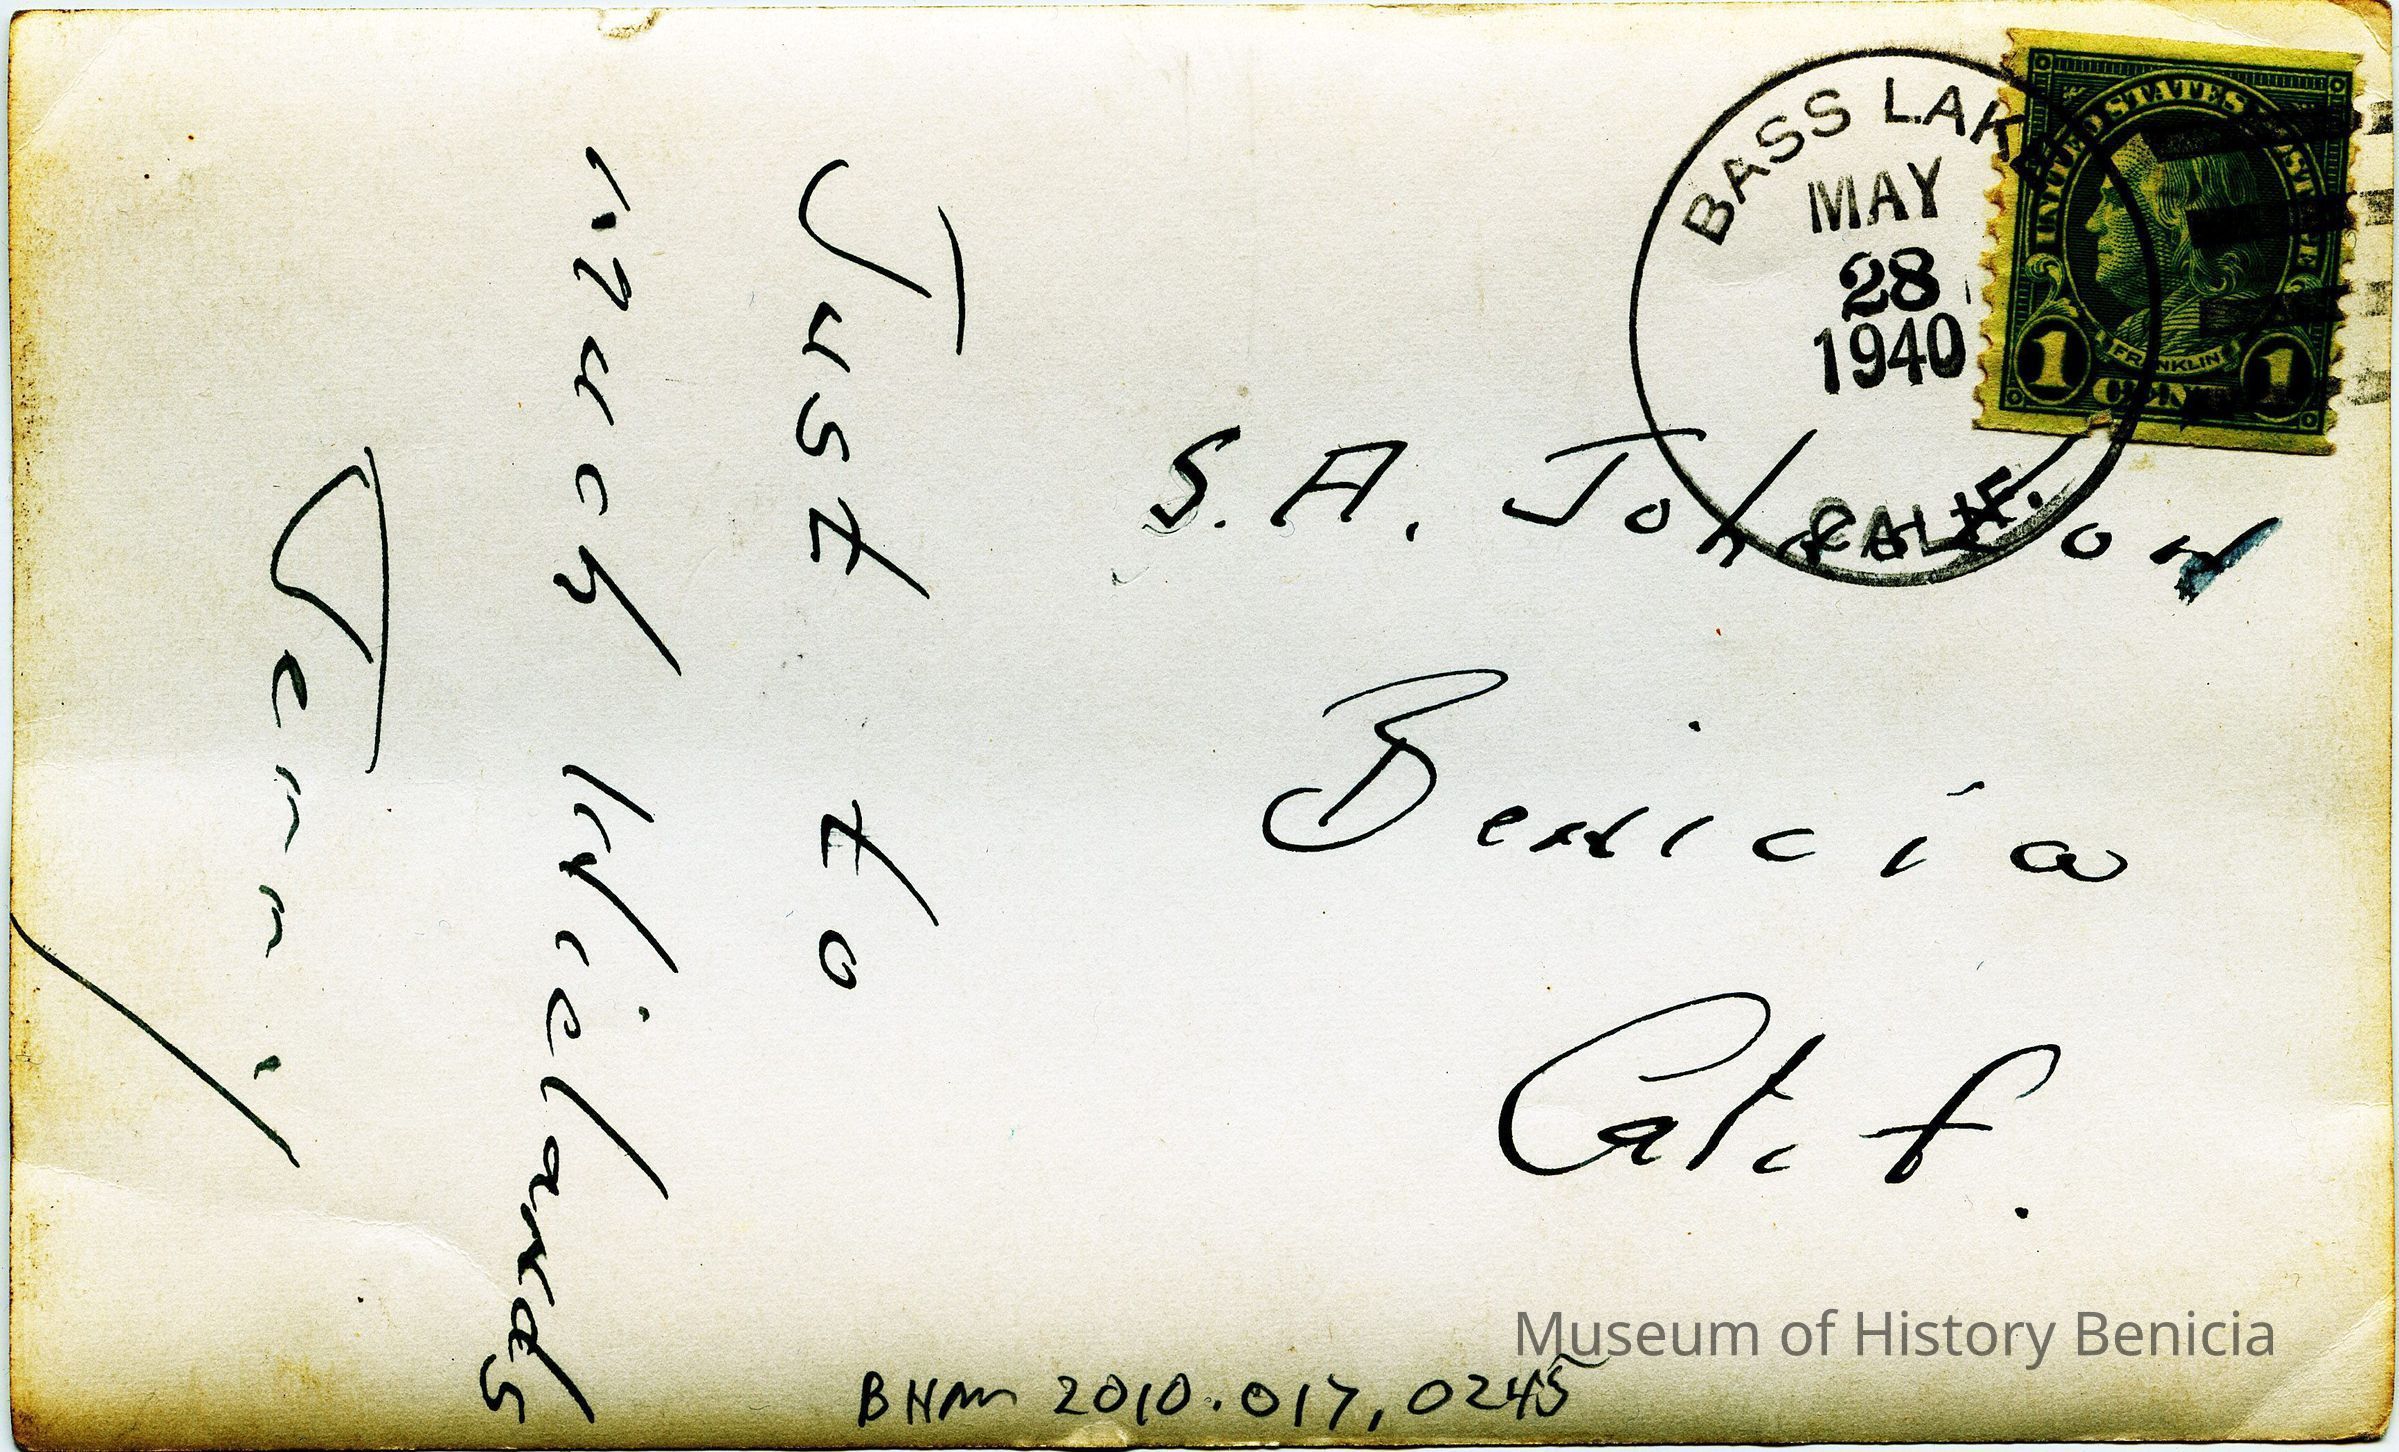 BASS LAKE
MAY
28
1940
CALIF.
UNITED STATES POSTAGE
FRANKLIN
1 CENT 1
S. A. Johnston
Benicia
Calif.
Just to
Museum of History Benicia
BHM 2010.017,0245